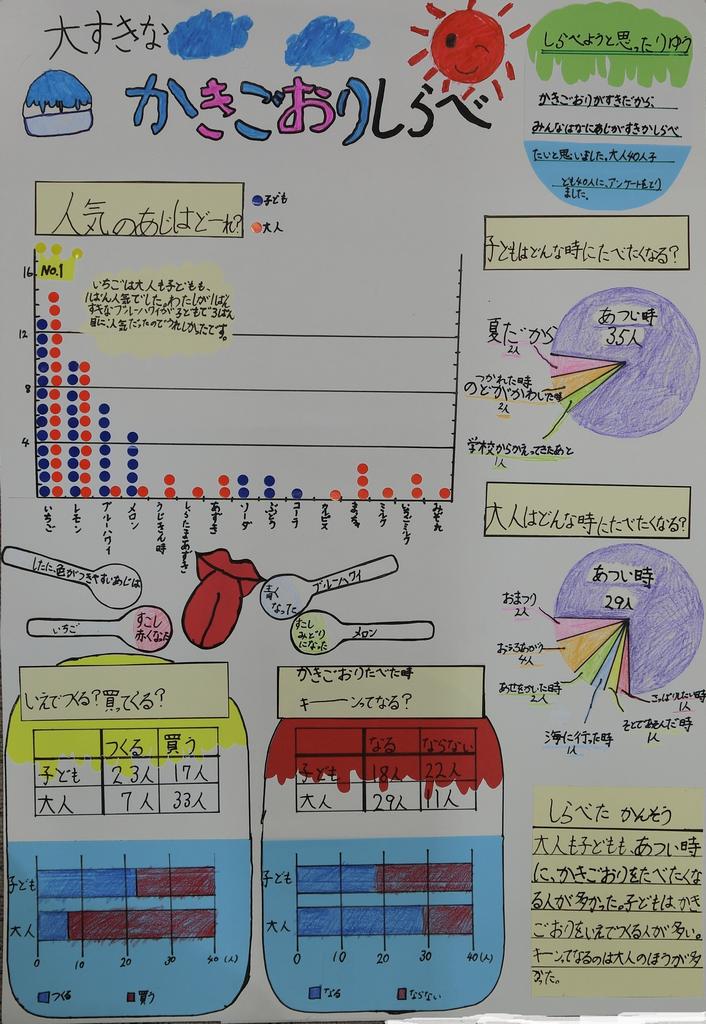 大すきな
かきごおりしらべ
しらべようと思ったりゆう
かきごおりがすきだから、
みんなはなにあじがすきかしらべ
たいと思いました。大人40人子
ども40人に、アンケートをとり
ました。
人気のあじはどーれ?
子ども
大人
No.1
いちごは大人も子どもも、
1ばん人気でした。わたしが1ばん
すきなブルーハワイが子どもで3ばん
目に人気だったのでうれしかったです。
16
12
8
4
いちご
レモン
ブルーハワイ
メロン
うじきん時
しらたまあずき
あずき
ソーダ
ぶどう
コーラ
カルピス
まっちゃ
ミルク
いちごミルク
みぞれ
子どもはどんな時にたべたくなる?
あつい時
35人
夏だから
2人
つかれた時
のどがかわいた時
2人
学校からかえってきたあと
1人
大人はどんな時にたべたくなる?
あつい時
29人
おまつり
2人
おふろあがり
4人
あせをかいた時
2人
海に行った時
1人
そとであそんだ時
1人
さっぱりしたい時
1人
したに、色がつきやすいあじは
いちご
すこし
赤くなった
青く
なった
ブルーハワイ
すこし
みどりに
になった
メロン
いえでつくる?買ってくる?
つくる 買う
子ども 23人 17人
大人 7人 33人
子ども
大人
0 10 20 30 40(人)
つくる 買う
かきごおりたべた時
キーーンってなる?
なる ならない
子ども 18人 22人
大人 29人 11人
子ども
大人
0 10 20 30 40(人)
なる ならない
しらべた かんそう
大人も子どもも、あつい時
に、かきごおりをたべたくな
る人が多かった。子どもはかき
ごおりをいえでつくる人が多い。
キーンってなるのは大人のほうが多
かった。